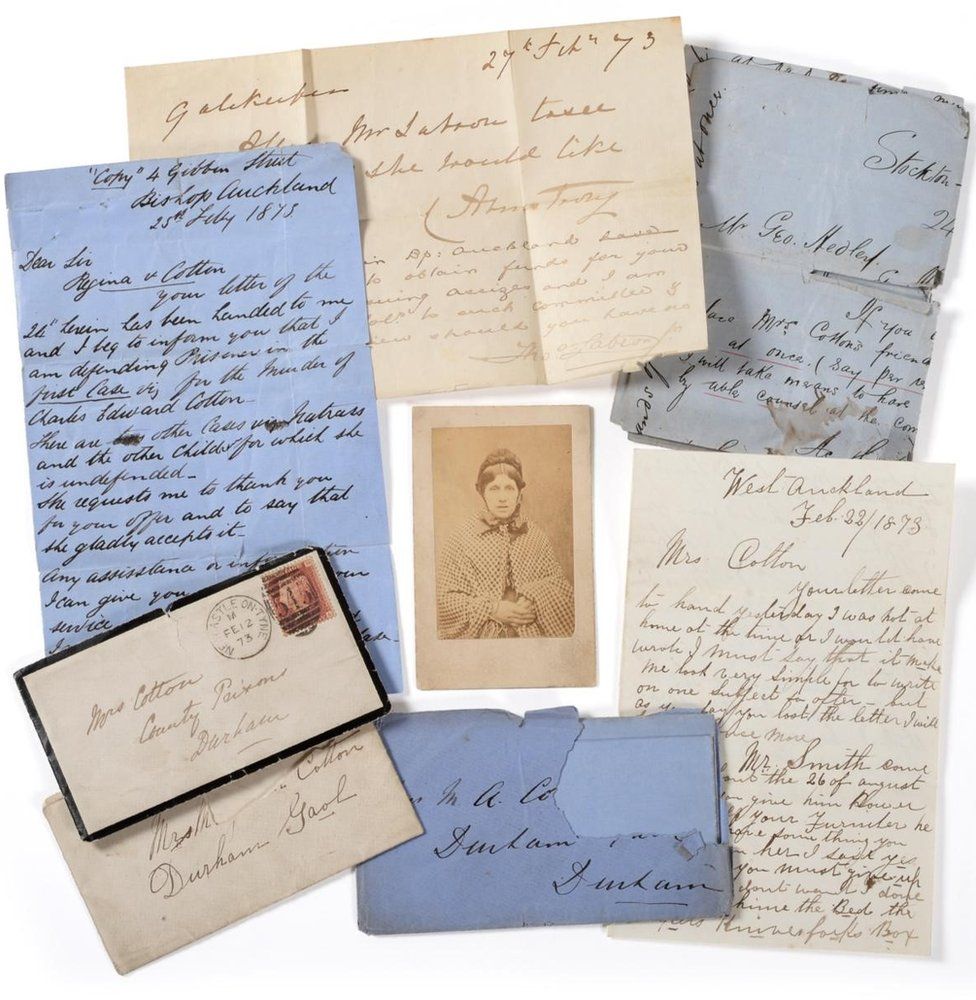 27th Feby 73
Gatekeeper
Mr Labron to see
she would like
C Armstrong
in Bp: Auckland have
to obtain funds for your
assizes and I am
to such committed &
should you have no
Thos Labron
"Copy" 4 Gibbon Street
Bishop Auckland
25th Feby 1873
Dear Sir
Regina v Cotton
your letter of the
24th herein has been handed to me
and I beg to inform you that I
am defending Prisoner in the
first Case viz for the Murder of
Charles Edward Cotton
There are two other Cases viz Natrass
and the other Childer for which she
is undefended
She requests me to thank you
for your offer and to say that
she gladly accepts it
Any assistance or information
I can give you
service
at once.
Stockton
24
Mr Geo. Hedley.
If you
Mrs Cotton's friend
at once. (Say per re
I will take means to have
by able counsel at the
West Auckland
Feb 22/1873
Mrs Cotton
your letter came
to hand yesterday I was not at
home at the time or I would have
wrote I must say that it make
me look very simple for to write
on one subject so often but
as you say you lost the letter I will
once more
Mr. Smith come
the 26 of august
you give him Power
your Furniter he
some thing you
her I said yes
you must give up
dont want I done
hime the Bed the
Kniverforks Box
NEWCASTLE-ON-TYNE
M
FE 12
73
Mrs Cotton
County Prison
Durham
Mrs M Cotton
Durham Gaol
M A. Co
Durham
Durham